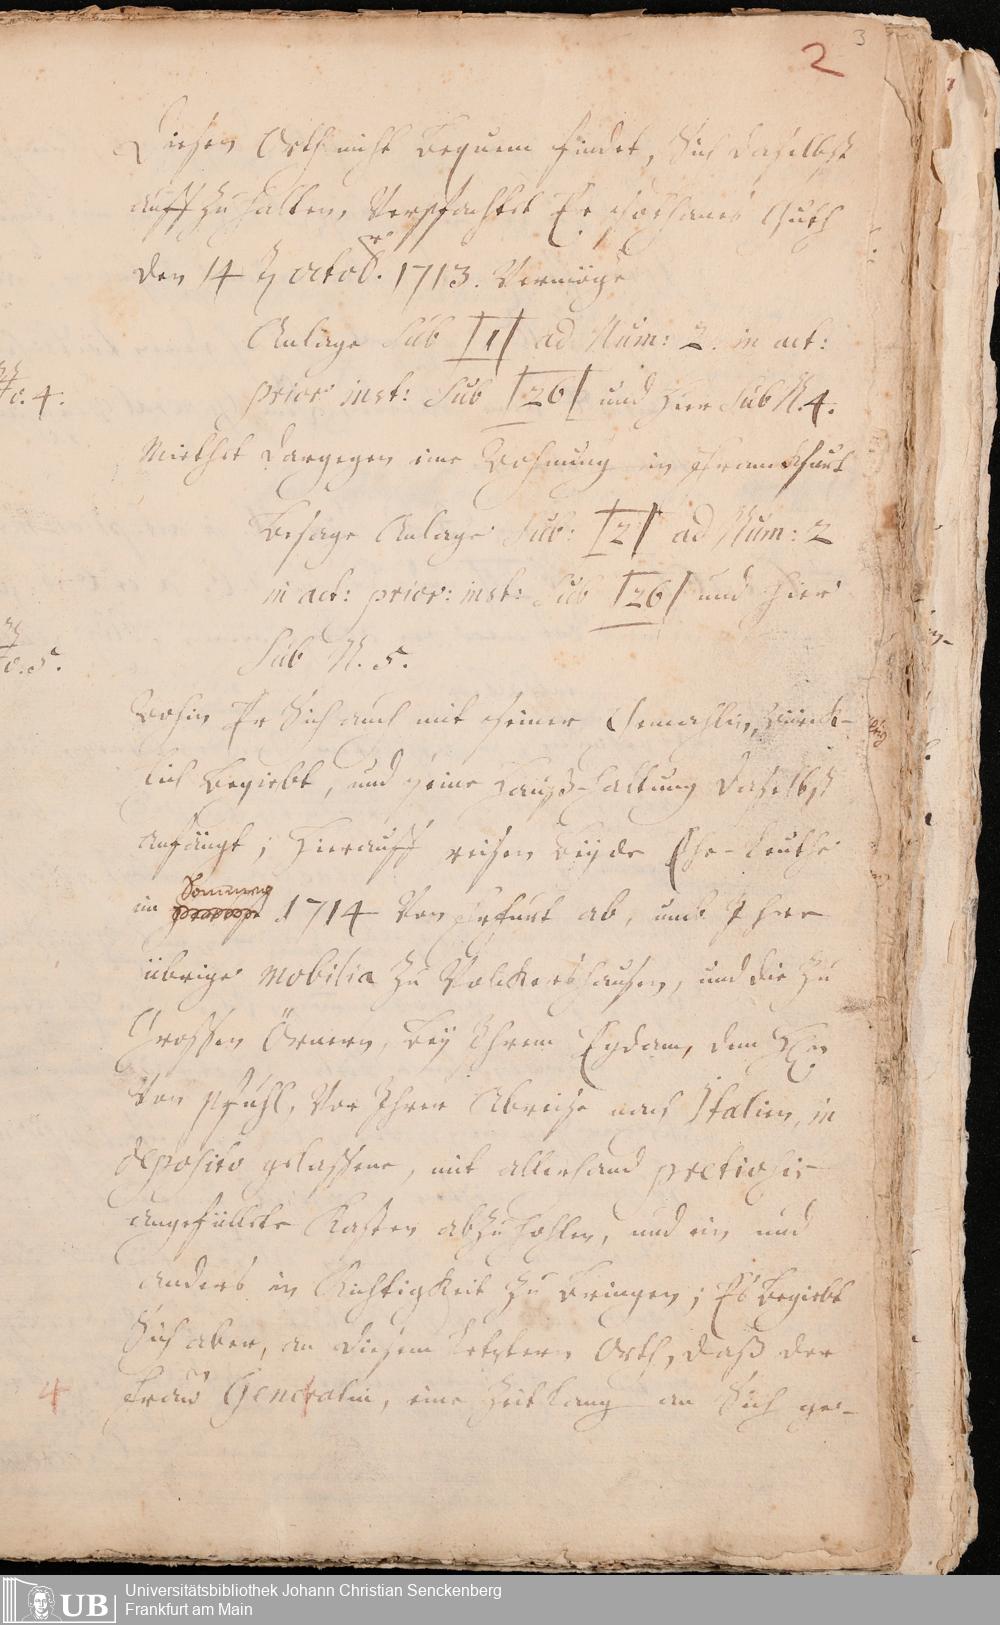 3
2
Diesen Orth nicht bequem findet, Sich daselbst
auffzuhalten, Verpfachtet Er solhanes Guth
den 14 octobr. 1713. Vermöge
Anlage Sub [1] ad Num: 2. in act:
No. 4.
prior: inst: Sub [26] und hier Sub N. 4.
Miethet dargegen eine Wohnung in Franckfurt
Besage Anlage Sub: [2] ad Num: 2
in act: prior: inst: Sub [26] und hier
No. 5.
Sub N. 5.
Wohin Er Sich auch mit seiner Gemahlin, Würck-
lich begiebt, und seine Hauß-haltung daselbst
anfängt; Hierauff reisen beyde Ehe-Leuthe
im Sommer 1714 Von Erfurt ab, umb Ihre
übrige Mobilia zu Volckershausen, und die zu
Grossen Örnern, bey Ihrem Eydam, dem Hrn
Von Pfuhl, Vor Ihrer Abreise nach Italien, in
deposito gelassene, mit allerhand pretiosis
angefüllete Kasten abzuhohlen, und ein und
anders in Richtigkeit zu bringen; Es begiebt
Sich aber, an diesem letztern Orth, daß der
4
Frau Generalin, eine Zeitlang an Sich ge-
UB
Universitätsbibliothek Johann Christian Senckenberg
Frankfurt am Main